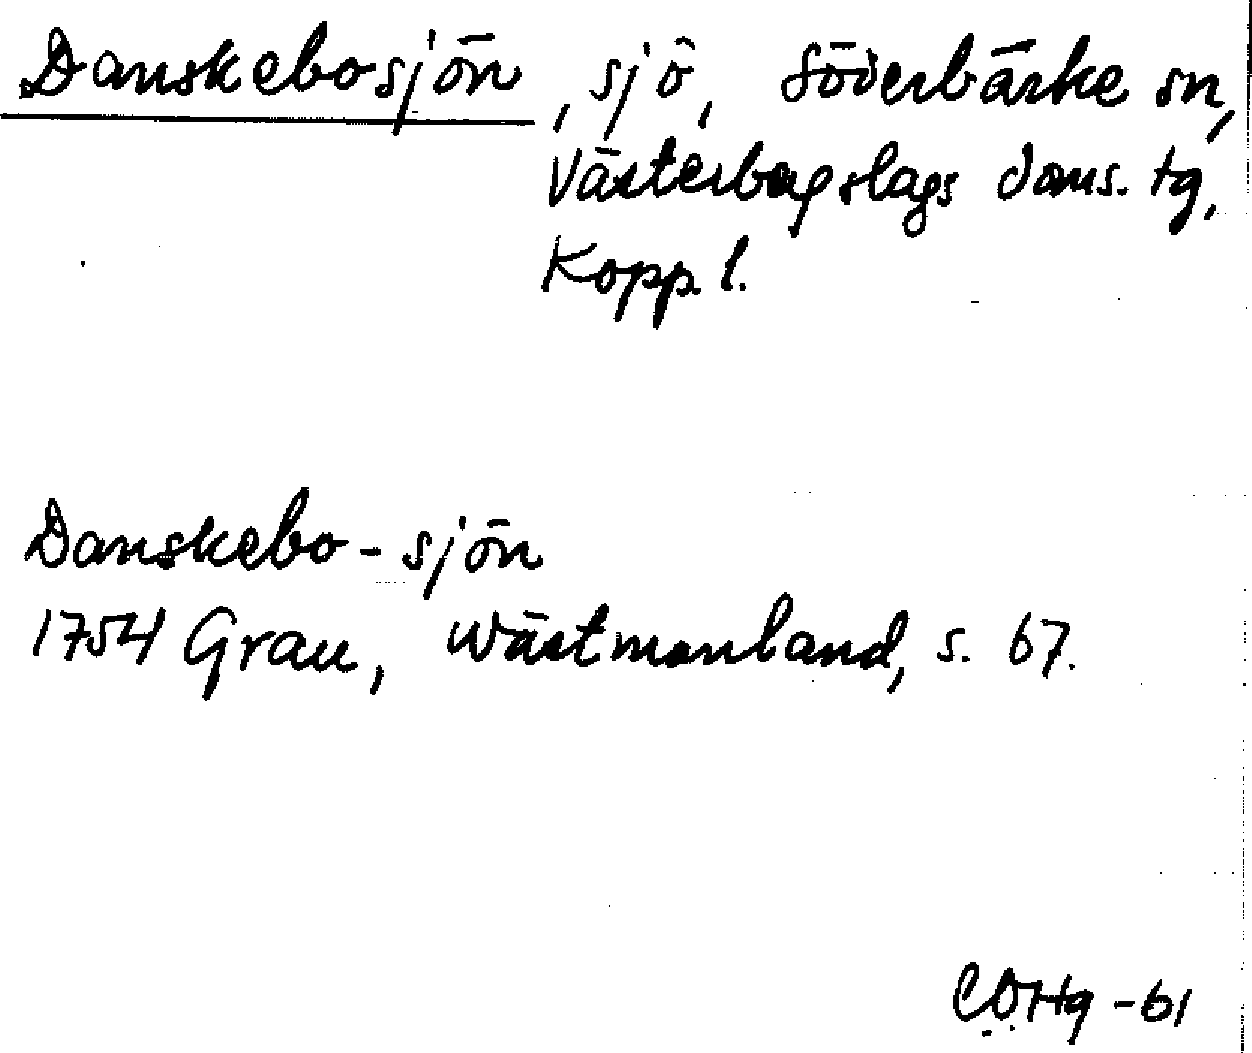 Danskebosjön, sjö, Söderbärke sn,
Västerbergslags doms. tg,
Kopp. l.
Danskebo-sjön
1754 Grau, Wästmanland, s. 67.
COHq -61